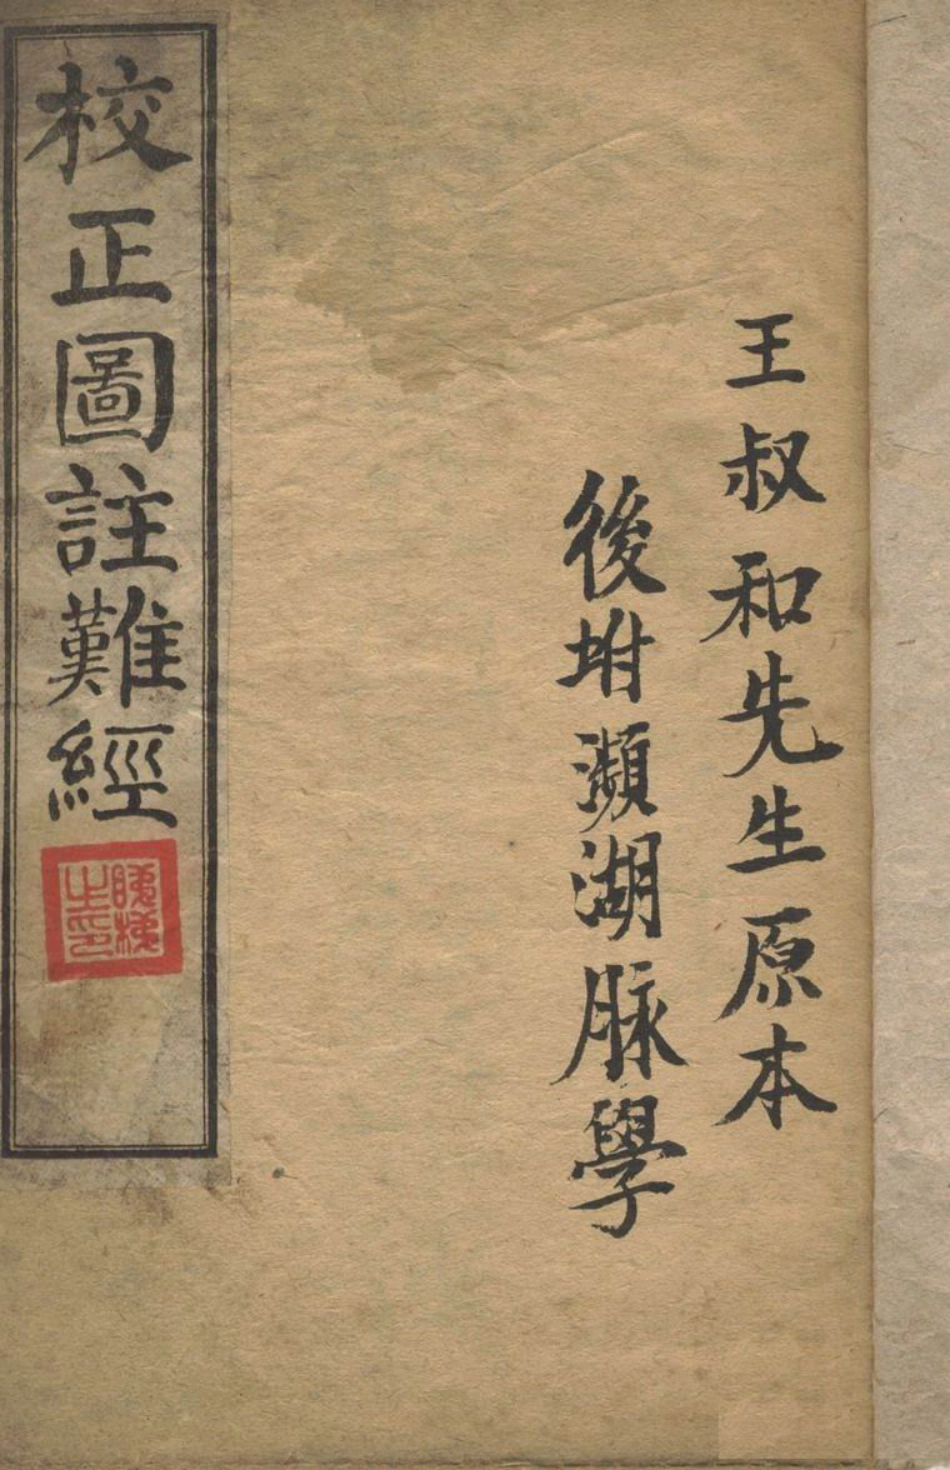 王叔和先生原本
後坿瀕湖脉學
校正圖註難經